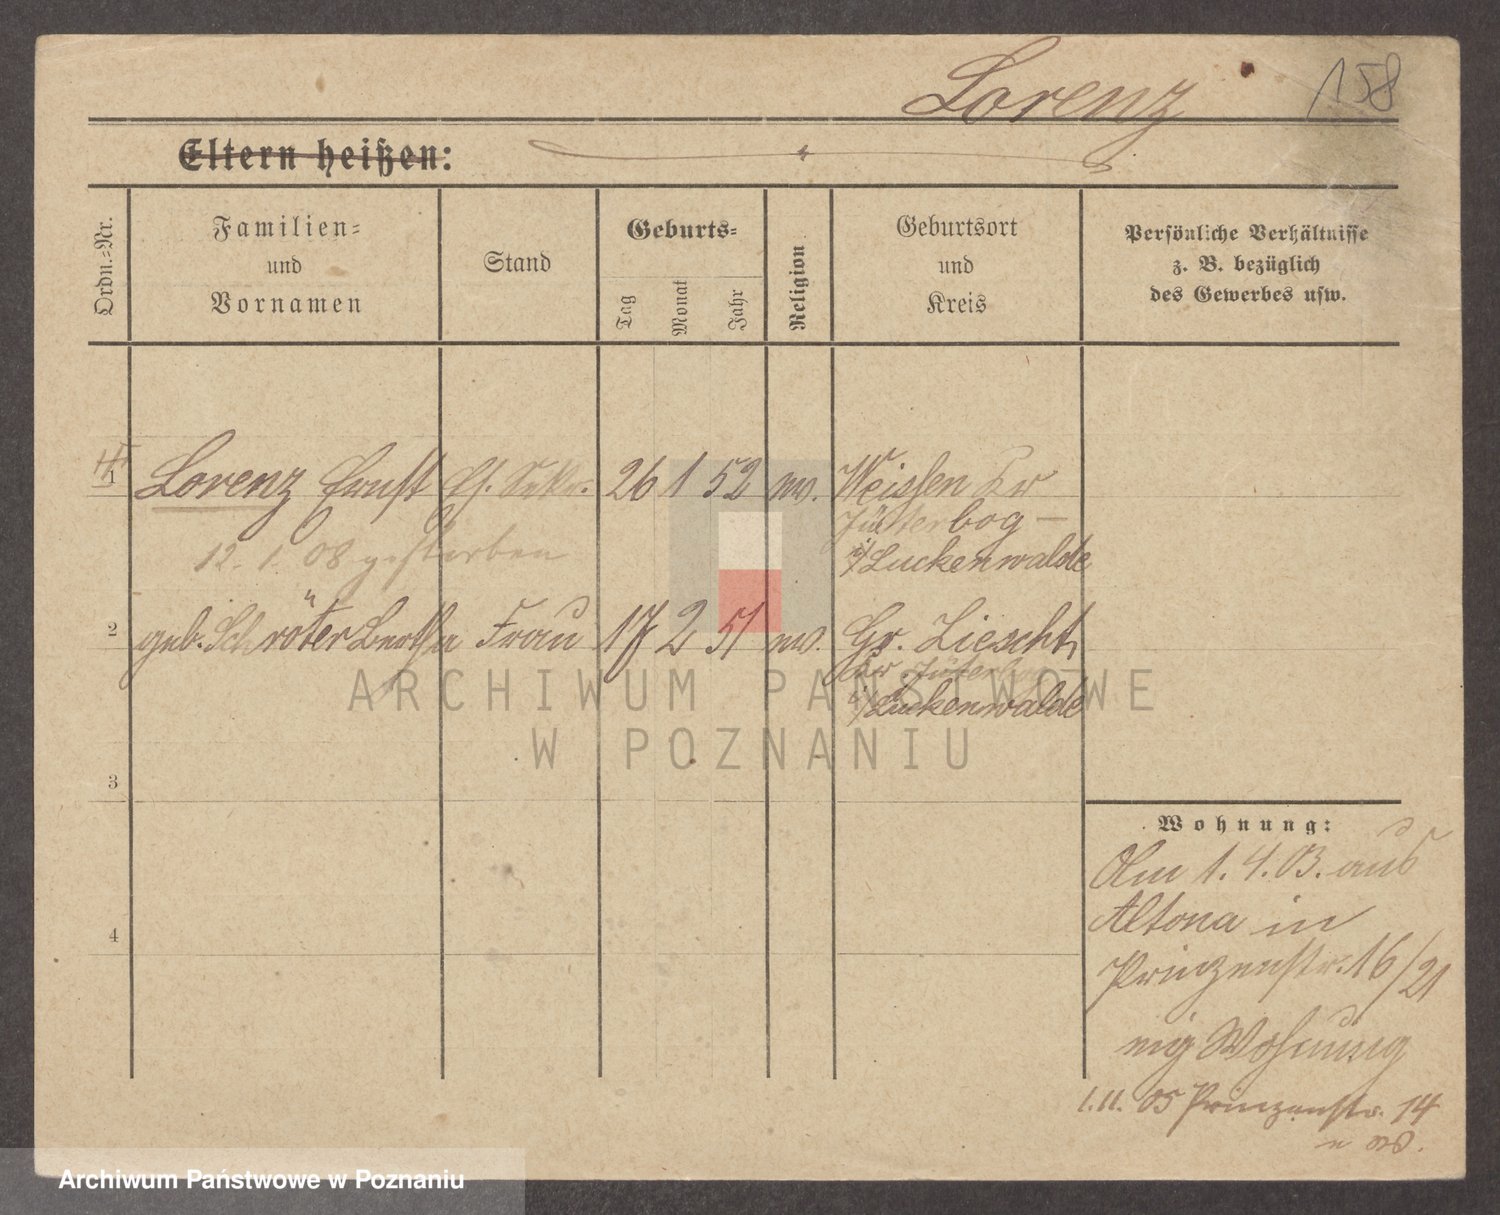 Lorenz 158
Eltern heißen:
Ordn.-Nr.
Familien-
und
Vornamen
Stand
Geburts-
Tag
Monat
Jahr
Religion
Geburtsort
und
Kreis
Persönliche Verhältnisse
z. B. bezüglich
des Gewerbes usw.
1 Lorenz Ernst 26 1 52 Weissen Kr
Jüterbog —
Luckenwalde
12. 1. 08 gestorben
2 geb. Schröter Bertha Frau 17 2 51 Gr. Ziescht
Kr Jüterbog
Luckenwalde
3
4
Wohnung:
Am 1. 4. 03. aus
Altona in
Prinzenstr. 16/21
eig Wohnung
1. 11. 05 Prinzenstr. 14
ARCHIWUM PAŃSTWOWE
W POZNANIU
Archiwum Państwowe w Poznaniu